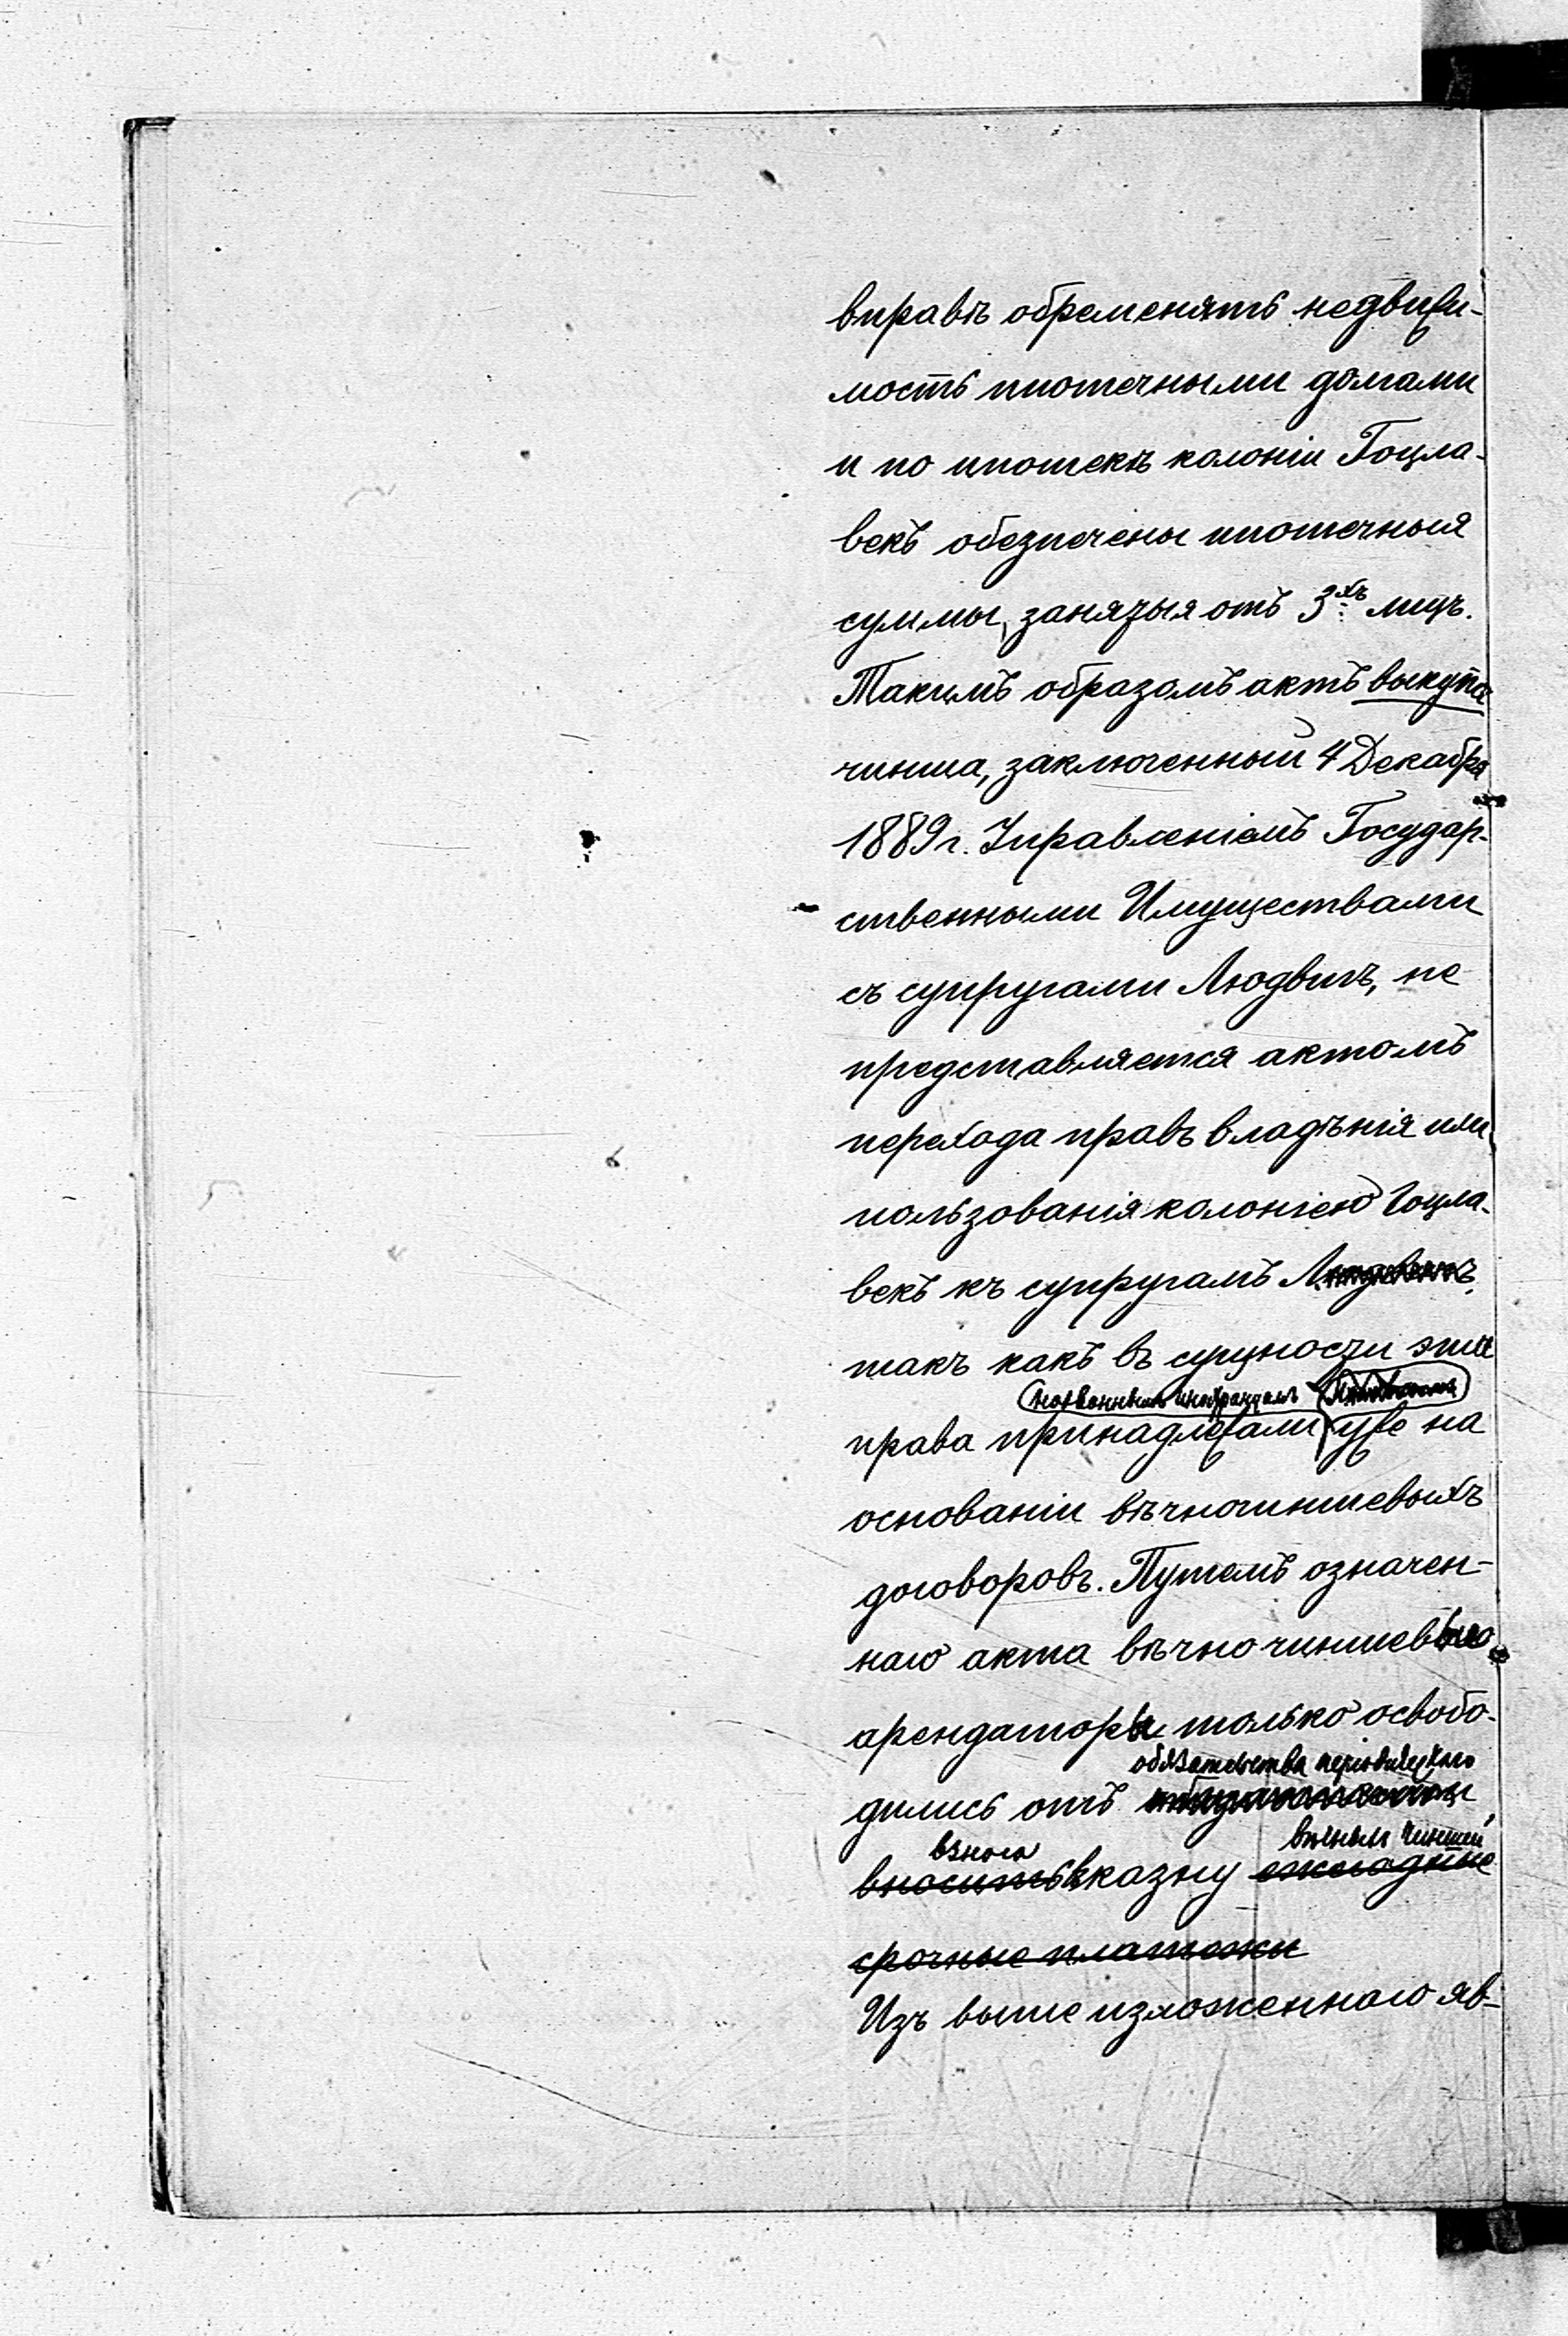 вправѣ обременять недвижи-
мость ипотечными долгами
и по ипотекѣ колоніи Гоцла-
векъ обезпечены ипотечныя
суммы, занятыя отъ 3хъ лицъ.
Такимъ образомъ актъ выкупа
чинша, заключенный 4 Декабря
1889 г. Управленіемъ Государ-
ственными Имуществами
съ супругами Людвигъ, не
представляется актомъ
перехода правъ владѣнія или
пользованія колоніею Гоцла-
векъ къ супругамъ Людвигъ,
такъ какъ въ сущности эти
названнымъ иностранцамъ
права принадлежали уже на
основаніи вѣчночиншевыхъ
договоровъ. Путемъ означен-
наго акта вѣчно чиншевые
арендаторы только освобо-
обязательства періодическаго
дились отъ
взноса вѣчныхъ чиншей
вносить въ казну ежегодные
срочные платежи
Изъ выше изложеннаго яв-